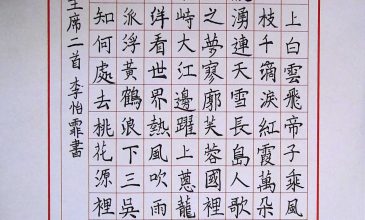 上白雲飛帝子乘風
枝千滴淚紅霞萬朵
湧連天雪長島人歌
之夢寥廓芙蓉國裡
峙大江邊躍上蔥蘢
洋看世界熱風吹雨
派浮黃鶴浪下三吳
知何處去桃花源裡
主席二首 李怡霏書